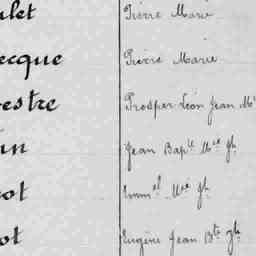 ulet Pierre Marie
ecque Pierre Marie
estre Prosper Léon Jean Mie
in Jean Bapte Mie Jh
ot Emmel Mie Jh
ot Eugène Jean Bte Jh